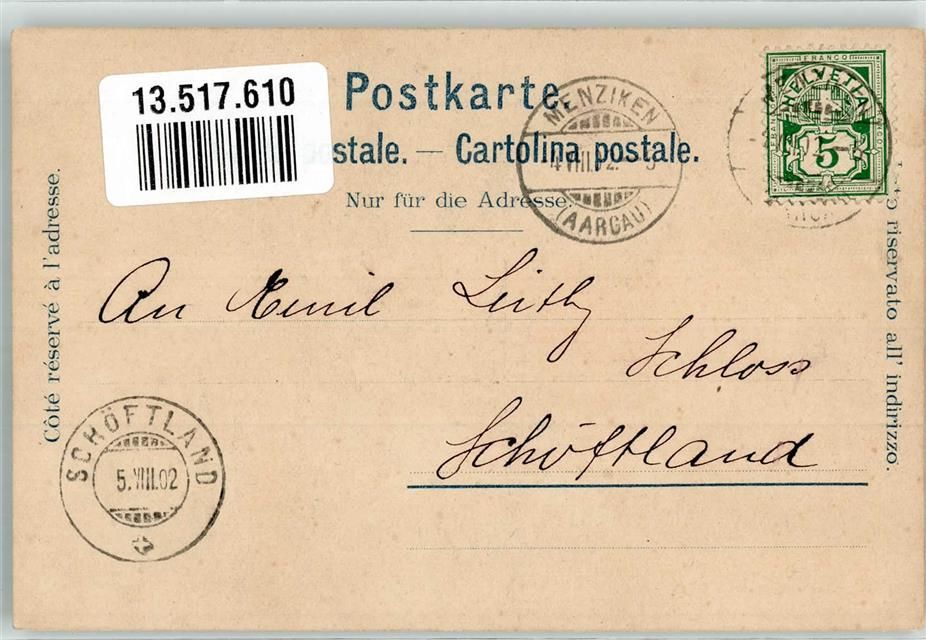 13.517.610
Postkarte.
postale. — Cartolina postale.
Nur für die Adresse.
Côté réservé à l'adresse.
riservato all' indirizzo.
MENZIKEN
4 VIII.02.
(AARGAU)
FRANCO
HELVETIA
5
An Emil Leuthy
Schloss
Schöftland
SCHÖFTLAND
5.VIII.02